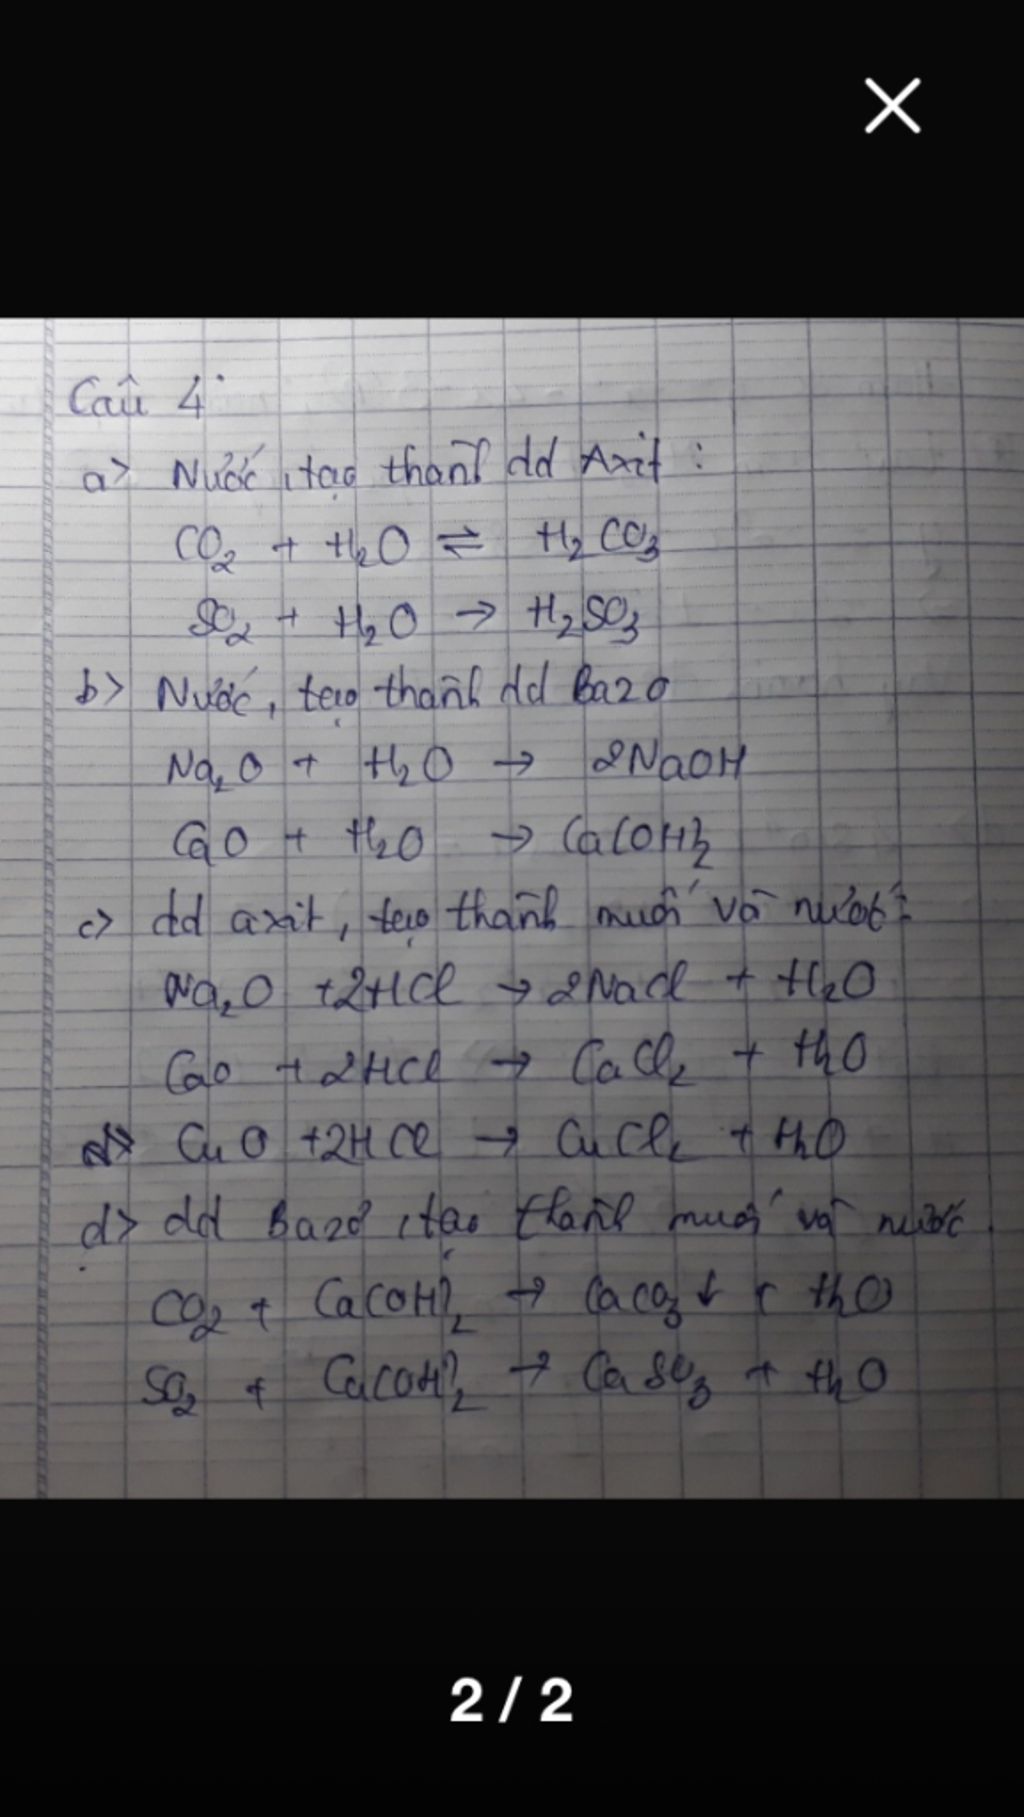 Câu 4
a> Nước, tạo thành dd Axit :
CO₂ + H₂O ⇌ H₂CO₃
SO₂ + H₂O → H₂SO₃
b> Nước, tạo thành dd Bazơ
Na₂O + H₂O → 2NaOH
CaO + H₂O → Ca(OH)₂
c> dd axit, tạo thành muối và nước :
Na₂O +2HCl → 2NaCl + H₂O
CaO + 2HCl → CaCl₂ + H₂O
CuO +2HCl → CuCl₂ + H₂O
d> dd Bazơ, tạo thành muối và nước
CO₂ + Ca(OH)₂ → CaCO₃↓ + H₂O
SO₂ + Ca(OH)₂ → CaSO₃ + H₂O
2 / 2